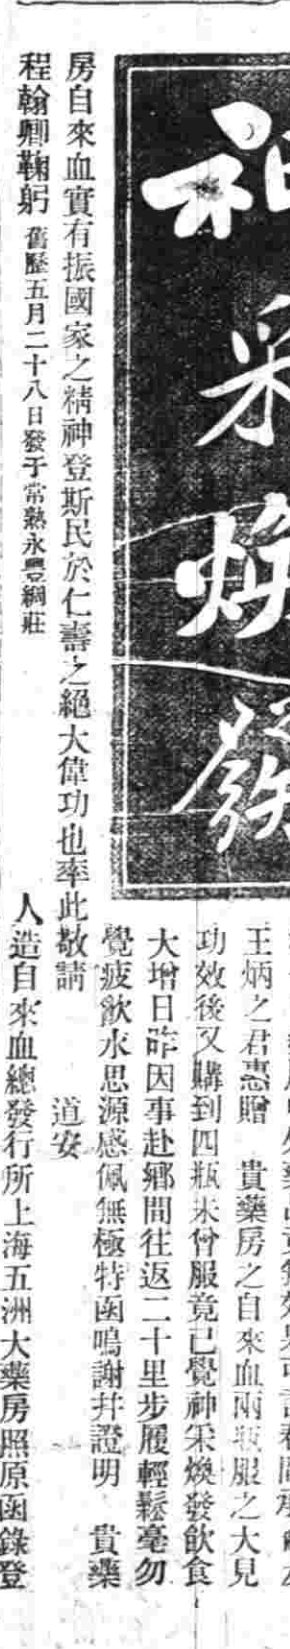 神采煥發
王炳之君惠贈　貴藥房之自來血兩瓶服之大見
功效後又購到四瓶未曾服竟已覺神采煥發飲食
大增日昨因事赴鄉間往返二十里步履輕鬆毫勿
覺疲飲水思源感佩無極特函鳴謝幷證明　貴藥
房自來血實有振國家之精神登斯民於仁壽之絕大偉功也率此敬請
道安
程翰卿鞠躬　舊歷五月二十八日發于常熟永豐綢莊
人造自來血總發行所上海五洲大藥房照原函錄登